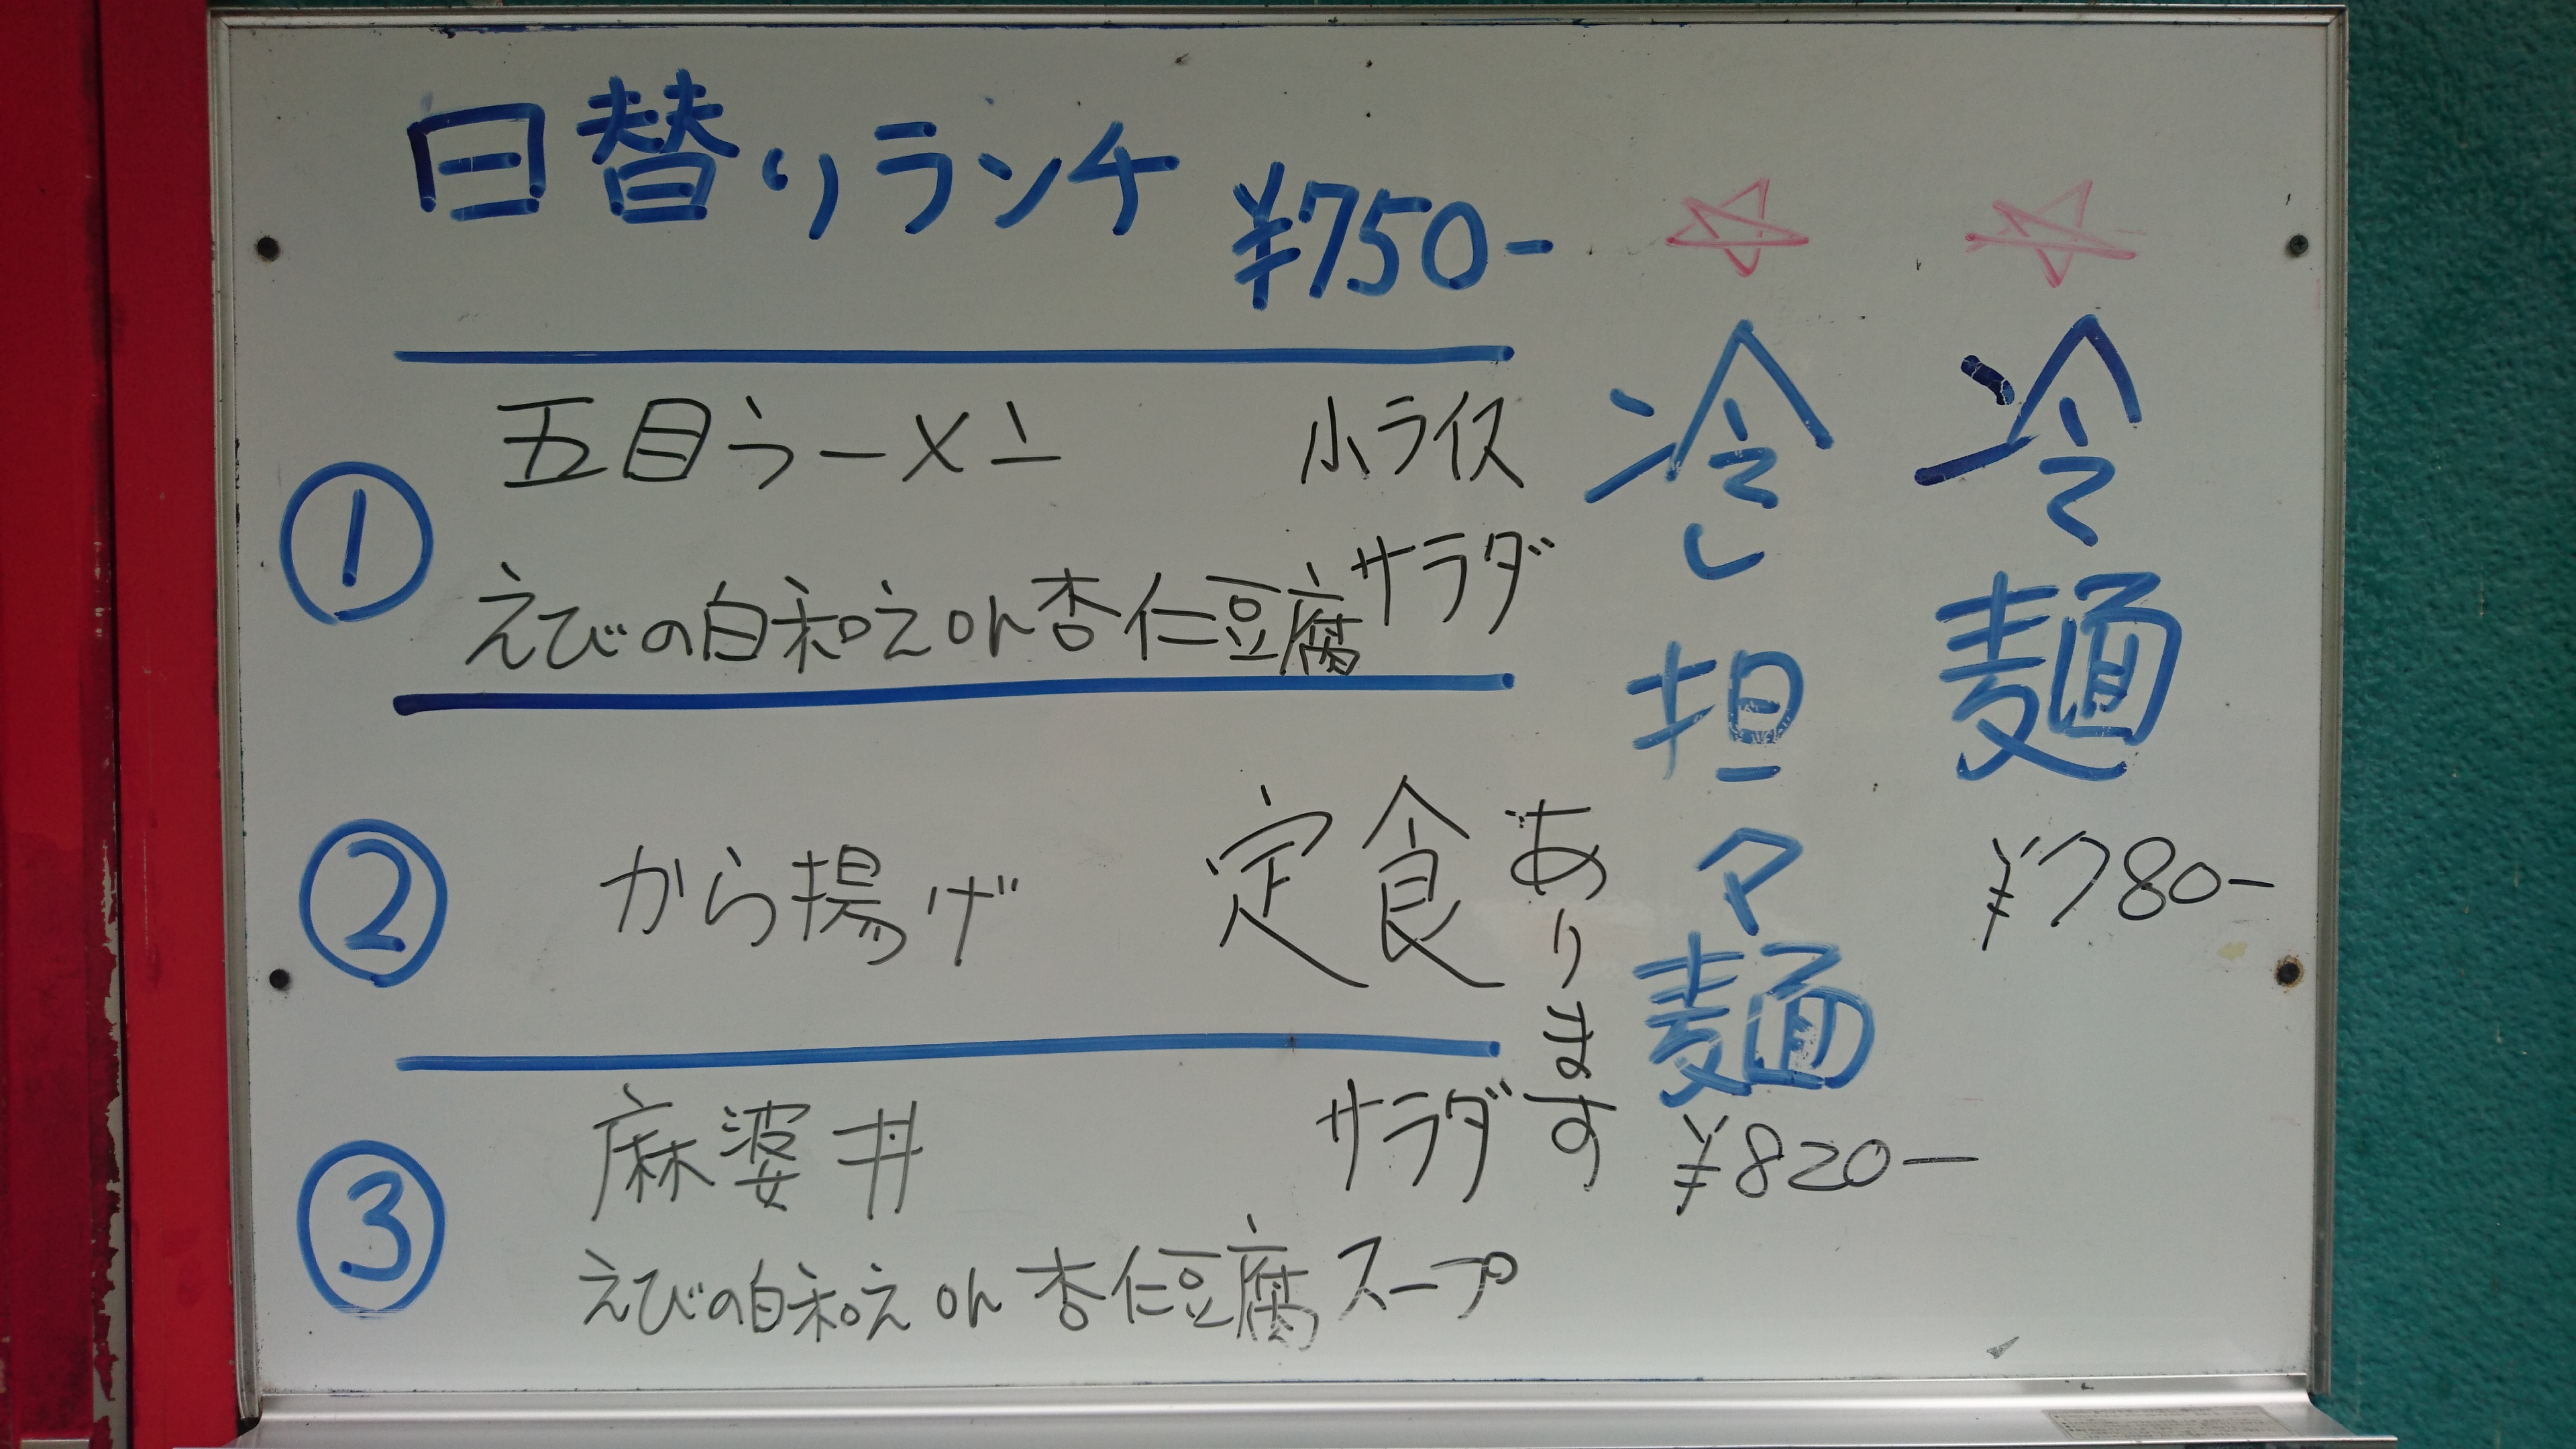 日替りランチ ¥750-
① 五目ラーメン 小ライス
えびの白和えon杏仁豆腐 サラダ
② から揚げ 定食
③ 麻婆丼 サラダ
えびの白和えon杏仁豆腐 スープ
あります
☆冷し担々麺
¥820-
☆冷麺
¥780-